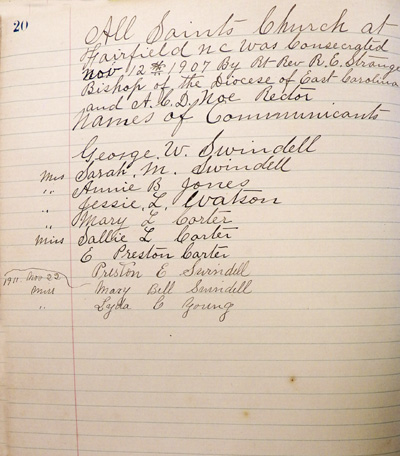 20
All Saints Church at
Fairfield NC was Consecrated
Nov 12th 1907 By Rt Rev R. C. Strange
Bishop of the Diocese of East Carolina
and A. C. D. Noe Rector
Names of Communicants
George. W. Swindell
Mrs Sarah. M. Swindell
" Annie B Jones
" Jessie. L. Watson
" Mary L Carter
Miss Sallie L Carter
C Preston Carter
Preston E Swindell
1911 Nov 22
Miss Mary Bell Swindell
" Lyda C Young